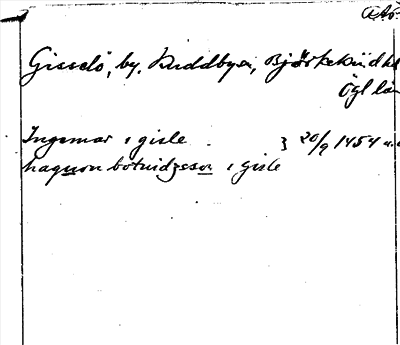 Gisselö, by, Kuddbyn, Björkekind hd
Ögl län
Ingemar i gisle 20/9 1454
haquon botuidzsson i gisle